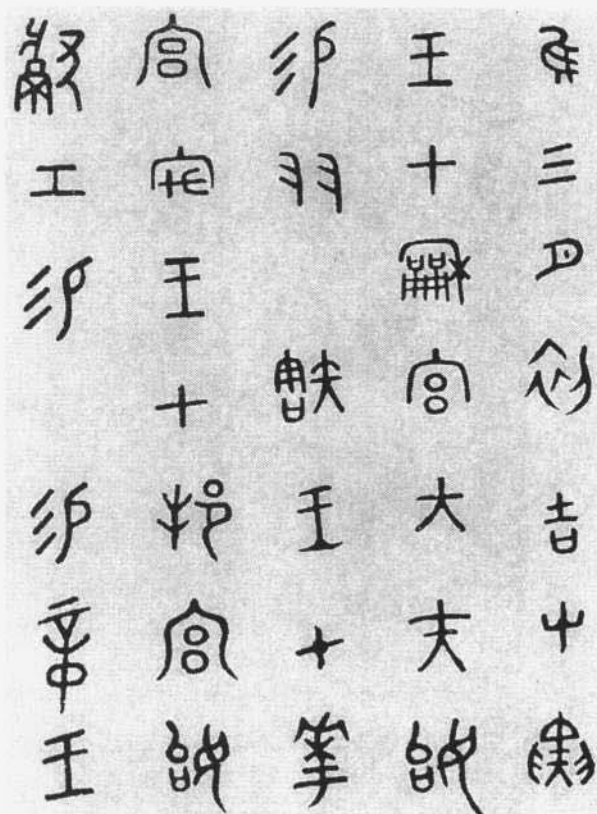 隹三月初吉甲寅
王才龢宮大夫始
易友㝬王才華
宮王才邦宮始
獻工易易章王